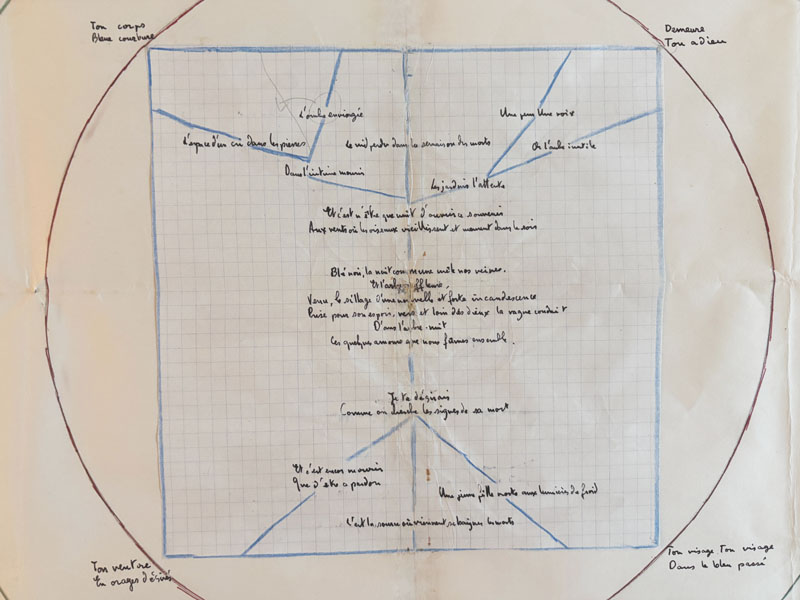 Ton corps
Bleue courbure
Demeure
Ton adieu
L'aube
Une peur Une voix
L'espace d'un cri dans les pierres
Le nid, perdu dans la des morts
Or l'aube inutile
Dans l'intime mourir
Les jardins l'attente
Et c'est n'être que nuit d'ouvrir ce souvenir
Aux vents où les oiseaux vieillissent et meurent dans le soir
Blé noir, la nuit commune mêle nos veines.
Et l'arbre
Venue, le sillage d'une nouvelle et forte incandescence
Prise pour son espoir, vers et loin des dieux la vague conduit
D'ans l'arbre-nuit
Ces quelques amours que nous fûmes ensemble.
Je te désirais
Comme on cherche les signes de sa mort
Et c'est encor mourir
Que d'être
Une jeune fille morte aux lumières du froid
C'est la source où viennent se baigner les morts
Ton ventre
En orages désirés
Ton visage Ton visage
Dans le bleu passé